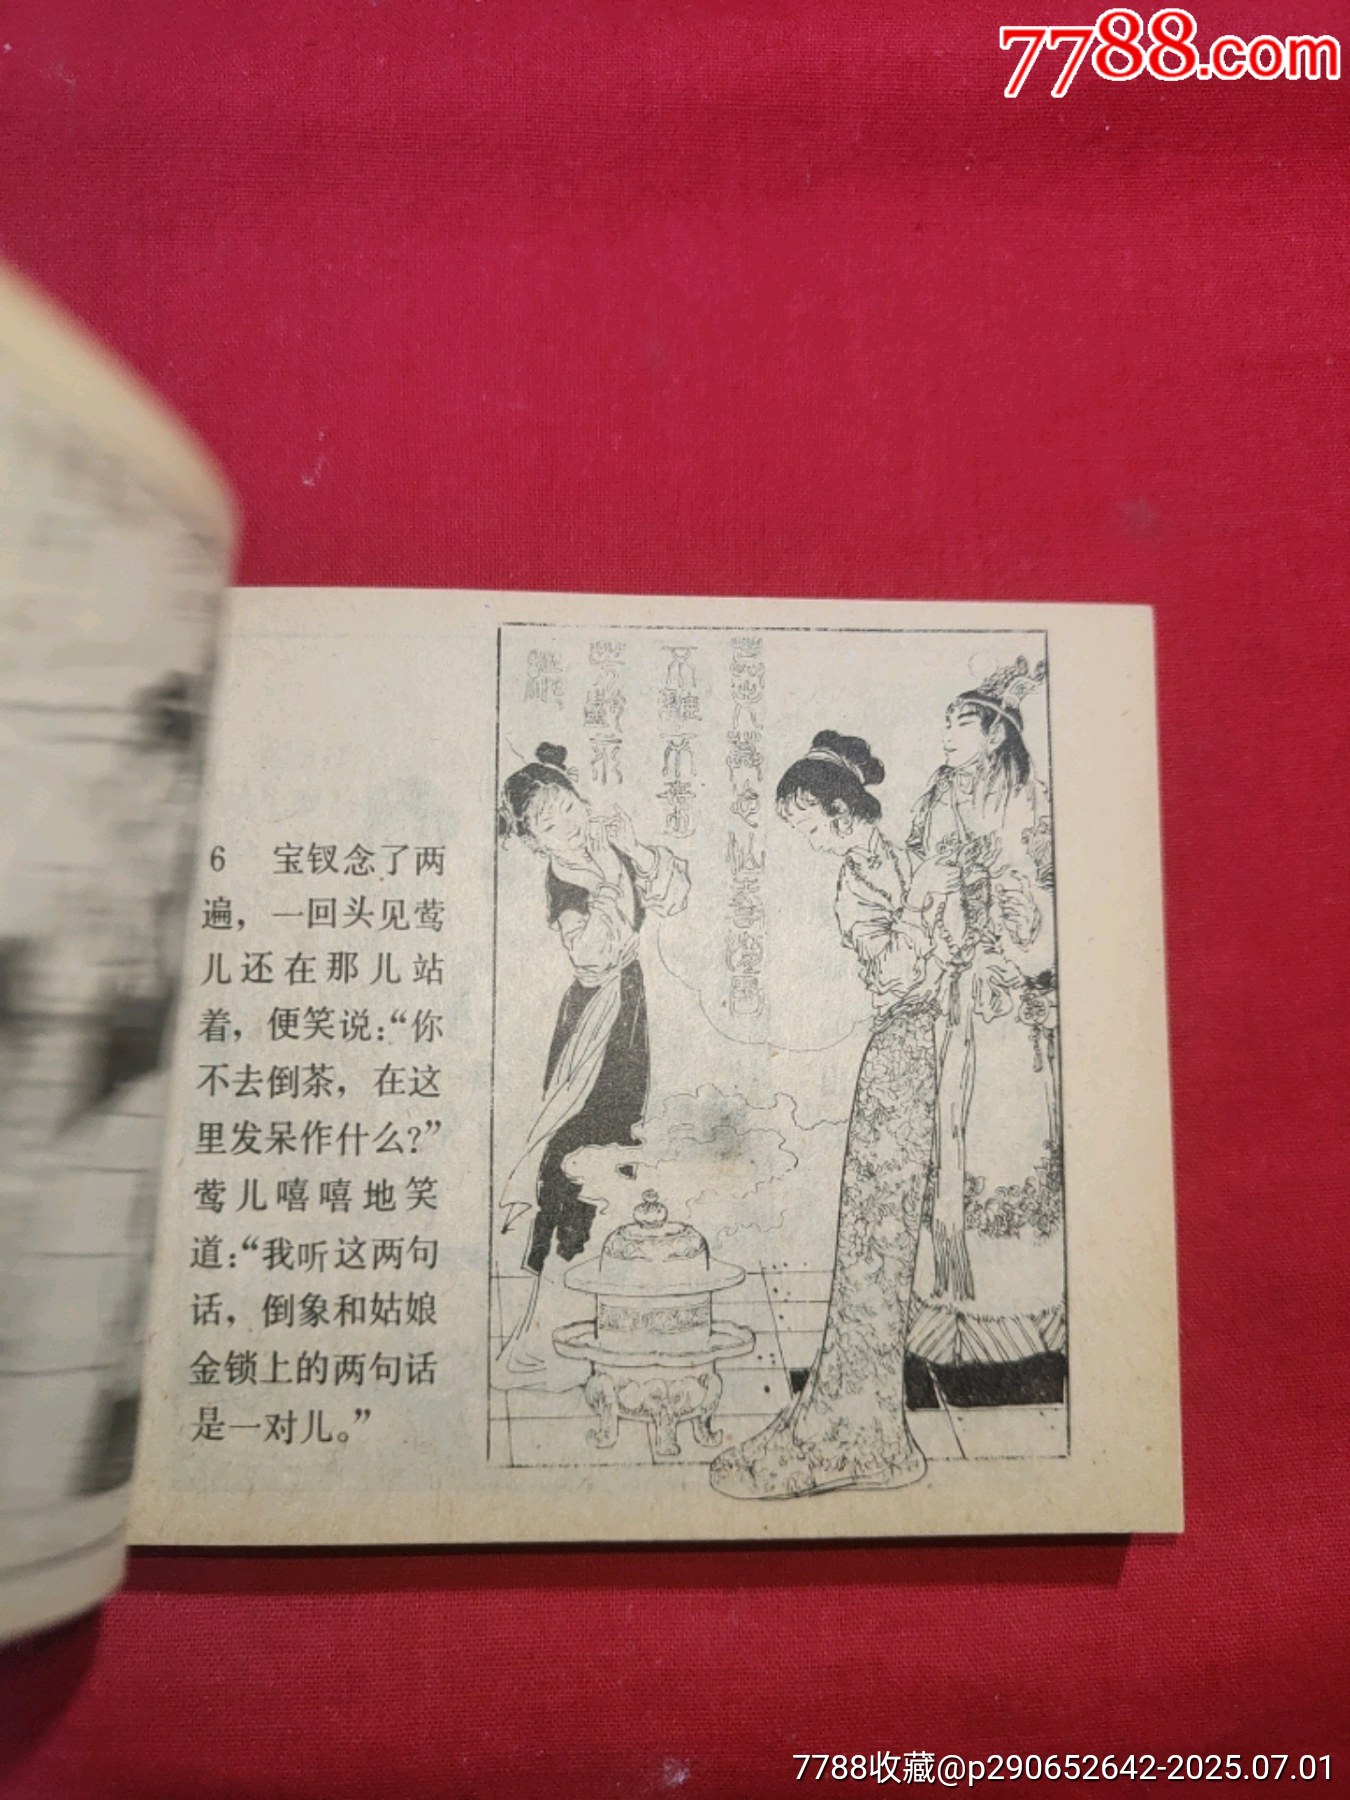 7788.com
6 宝钗念了两
遍，一回头见莺
儿还在那儿站
着，便笑说：“你
不去倒茶，在这
里发呆作什么？”
莺儿嘻嘻地笑
道：“我听这两句
话，倒象和姑娘
金锁上的两句话
是一对儿。”
不離不棄
芳齡永
7788收藏@p290652642-2025.07.01